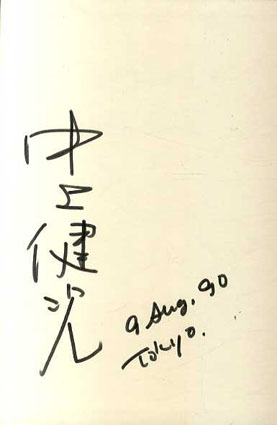 中上健次
9 Aug. 90
Tokyo.